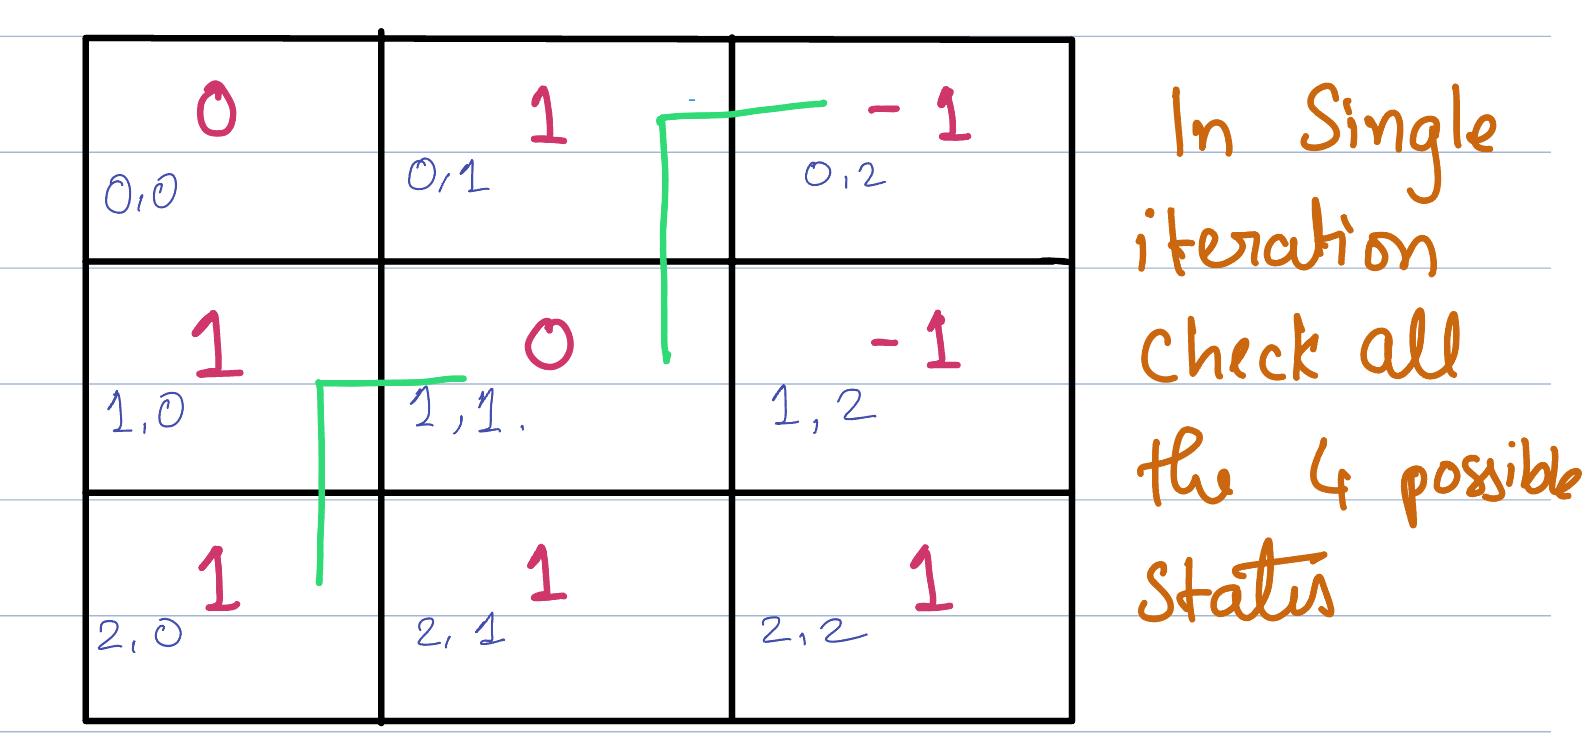 0 1 -1
0,0 0,1 0,2
1 0 -1
1,0 1,1. 1,2
1 1 1
2,0 2,1 2,2
In Single
iteration
check all
the 4 possible
status